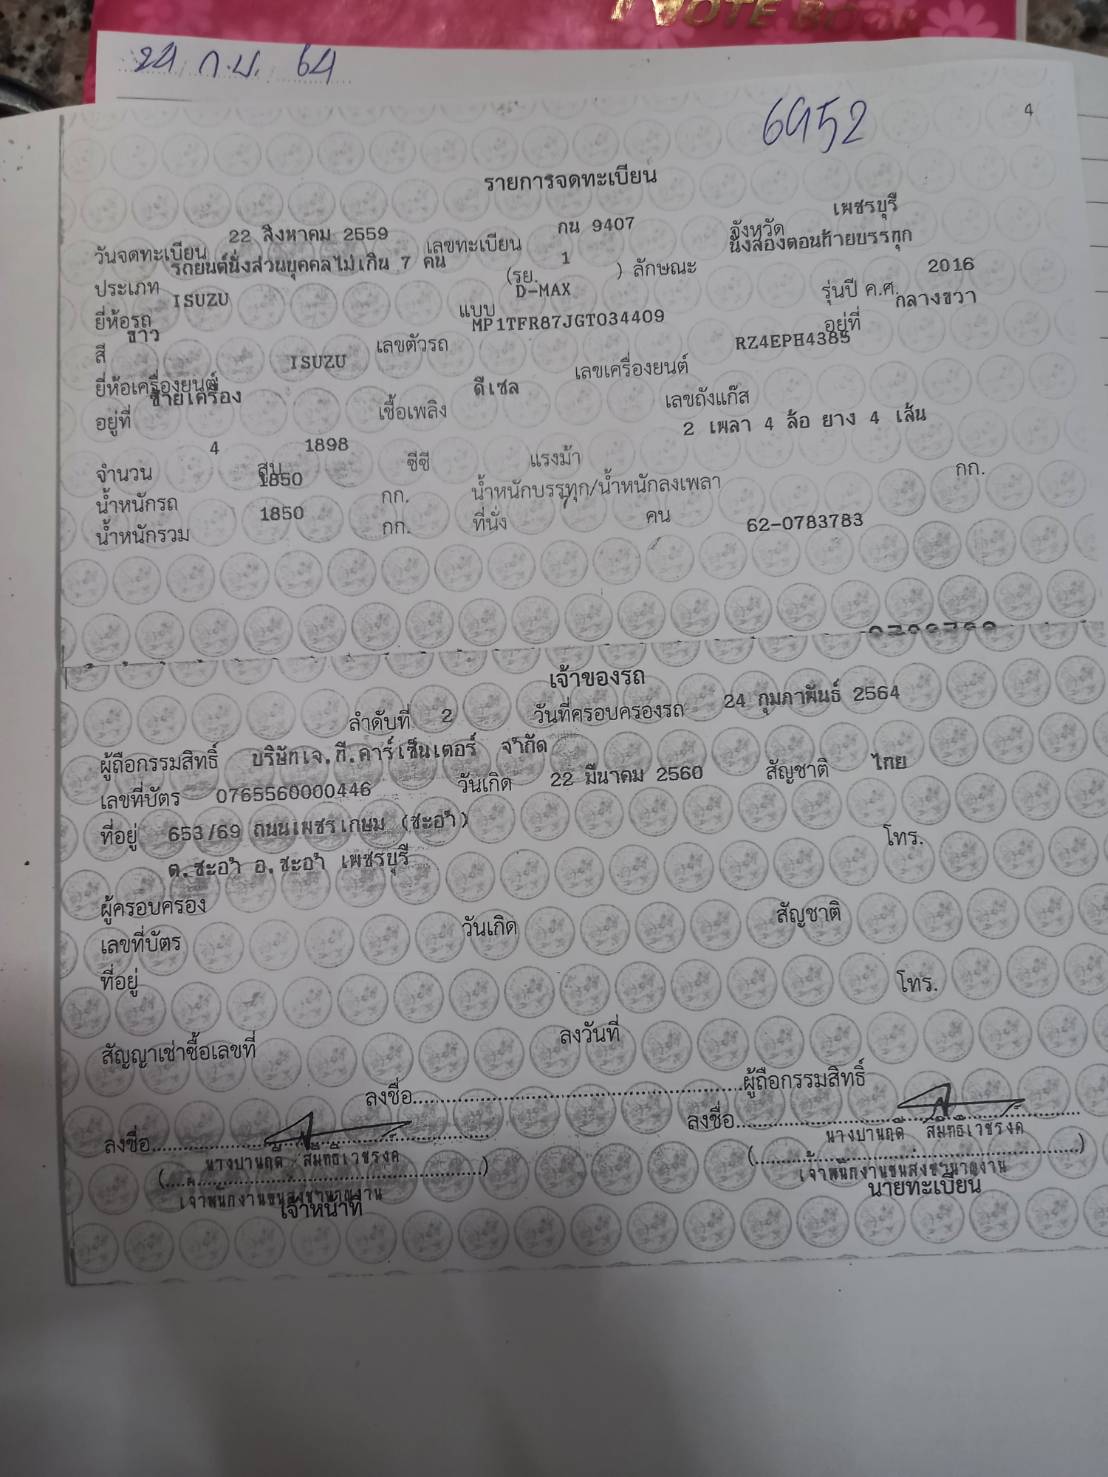 NOTE BOOK
24 ก.พ. 64
6952
4
รายการจดทะเบียน
วันจดทะเบียน 22 สิงหาคม 2559 เลขทะเบียน กน 9407 จังหวัด เพชรบุรี
ประเภท รถยนต์นั่งส่วนบุคคลไม่เกิน 7 คน (รย. 1 ) ลักษณะ นั่งสองตอนท้ายบรรทุก
ยี่ห้อรถ ISUZU แบบ D-MAX รุ่นปี ค.ศ. 2016
สี ขาว เลขตัวรถ MP1TFR87JGT034409 อยู่ที่ กลางขวา
ยี่ห้อเครื่องยนต์ ISUZU เลขเครื่องยนต์ RZ4EPH4385
อยู่ที่ ซ้ายเครื่อง เชื้อเพลิง ดีเซล เลขถังแก๊ส
จำนวน 4 สูบ 1898 ซีซี แรงม้า 2 เพลา 4 ล้อ ยาง 4 เส้น
น้ำหนักรถ 1850 กก. น้ำหนักบรรทุก/น้ำหนักลงเพลา กก.
น้ำหนักรวม 1850 กก. ที่นั่ง 7 คน 62-0783783
เจ้าของรถ
ลำดับที่ 2 วันที่ครอบครองรถ 24 กุมภาพันธ์ 2564
ผู้ถือกรรมสิทธิ์ บริษัทเจ.ที.คาร์เซ็นเตอร์ จำกัด
เลขที่บัตร 0765560000446 วันเกิด 22 มีนาคม 2560 สัญชาติ ไทย
ที่อยู่ 653/69 ถนนเพชรเกษม (ชะอำ) โทร.
ต.ชะอำ อ.ชะอำ เพชรบุรี
ผู้ครอบครอง
เลขที่บัตร วันเกิด สัญชาติ
ที่อยู่ โทร.
สัญญาเช่าซื้อเลขที่ ลงวันที่
ลงชื่อ ผู้ถือกรรมสิทธิ์
ลงชื่อ ลงชื่อ
เจ้าพนักงานขนส่งชำนาญงาน เจ้าพนักงานขนส่งชำนาญงาน
เจ้าหน้าที่ นายทะเบียน